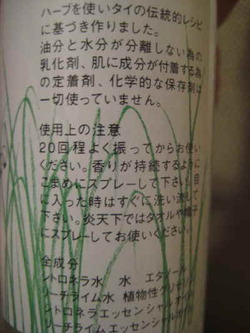 ハーブを使いタイの伝統的レシピ
に基づき作りました。
油分と水分が分離しない為の
乳化剤、肌に成分が付着する為
の定着剤、化学的な保存剤は
一切使っていません。
使用上の注意
20回程よく振ってからお使い
ください。香りが持続するように
こまめにスプレーして下さい。目
に入った時はすぐに洗い流して
下さい。炎天下ではタオルや帽子
にスプレーしてお使いください。
全成分
シトロネラ水 水 エタノール
リーチライム水 植物性グリセリン
シトロネラエッセンシャルオイル
リーチライムエッセンシャル